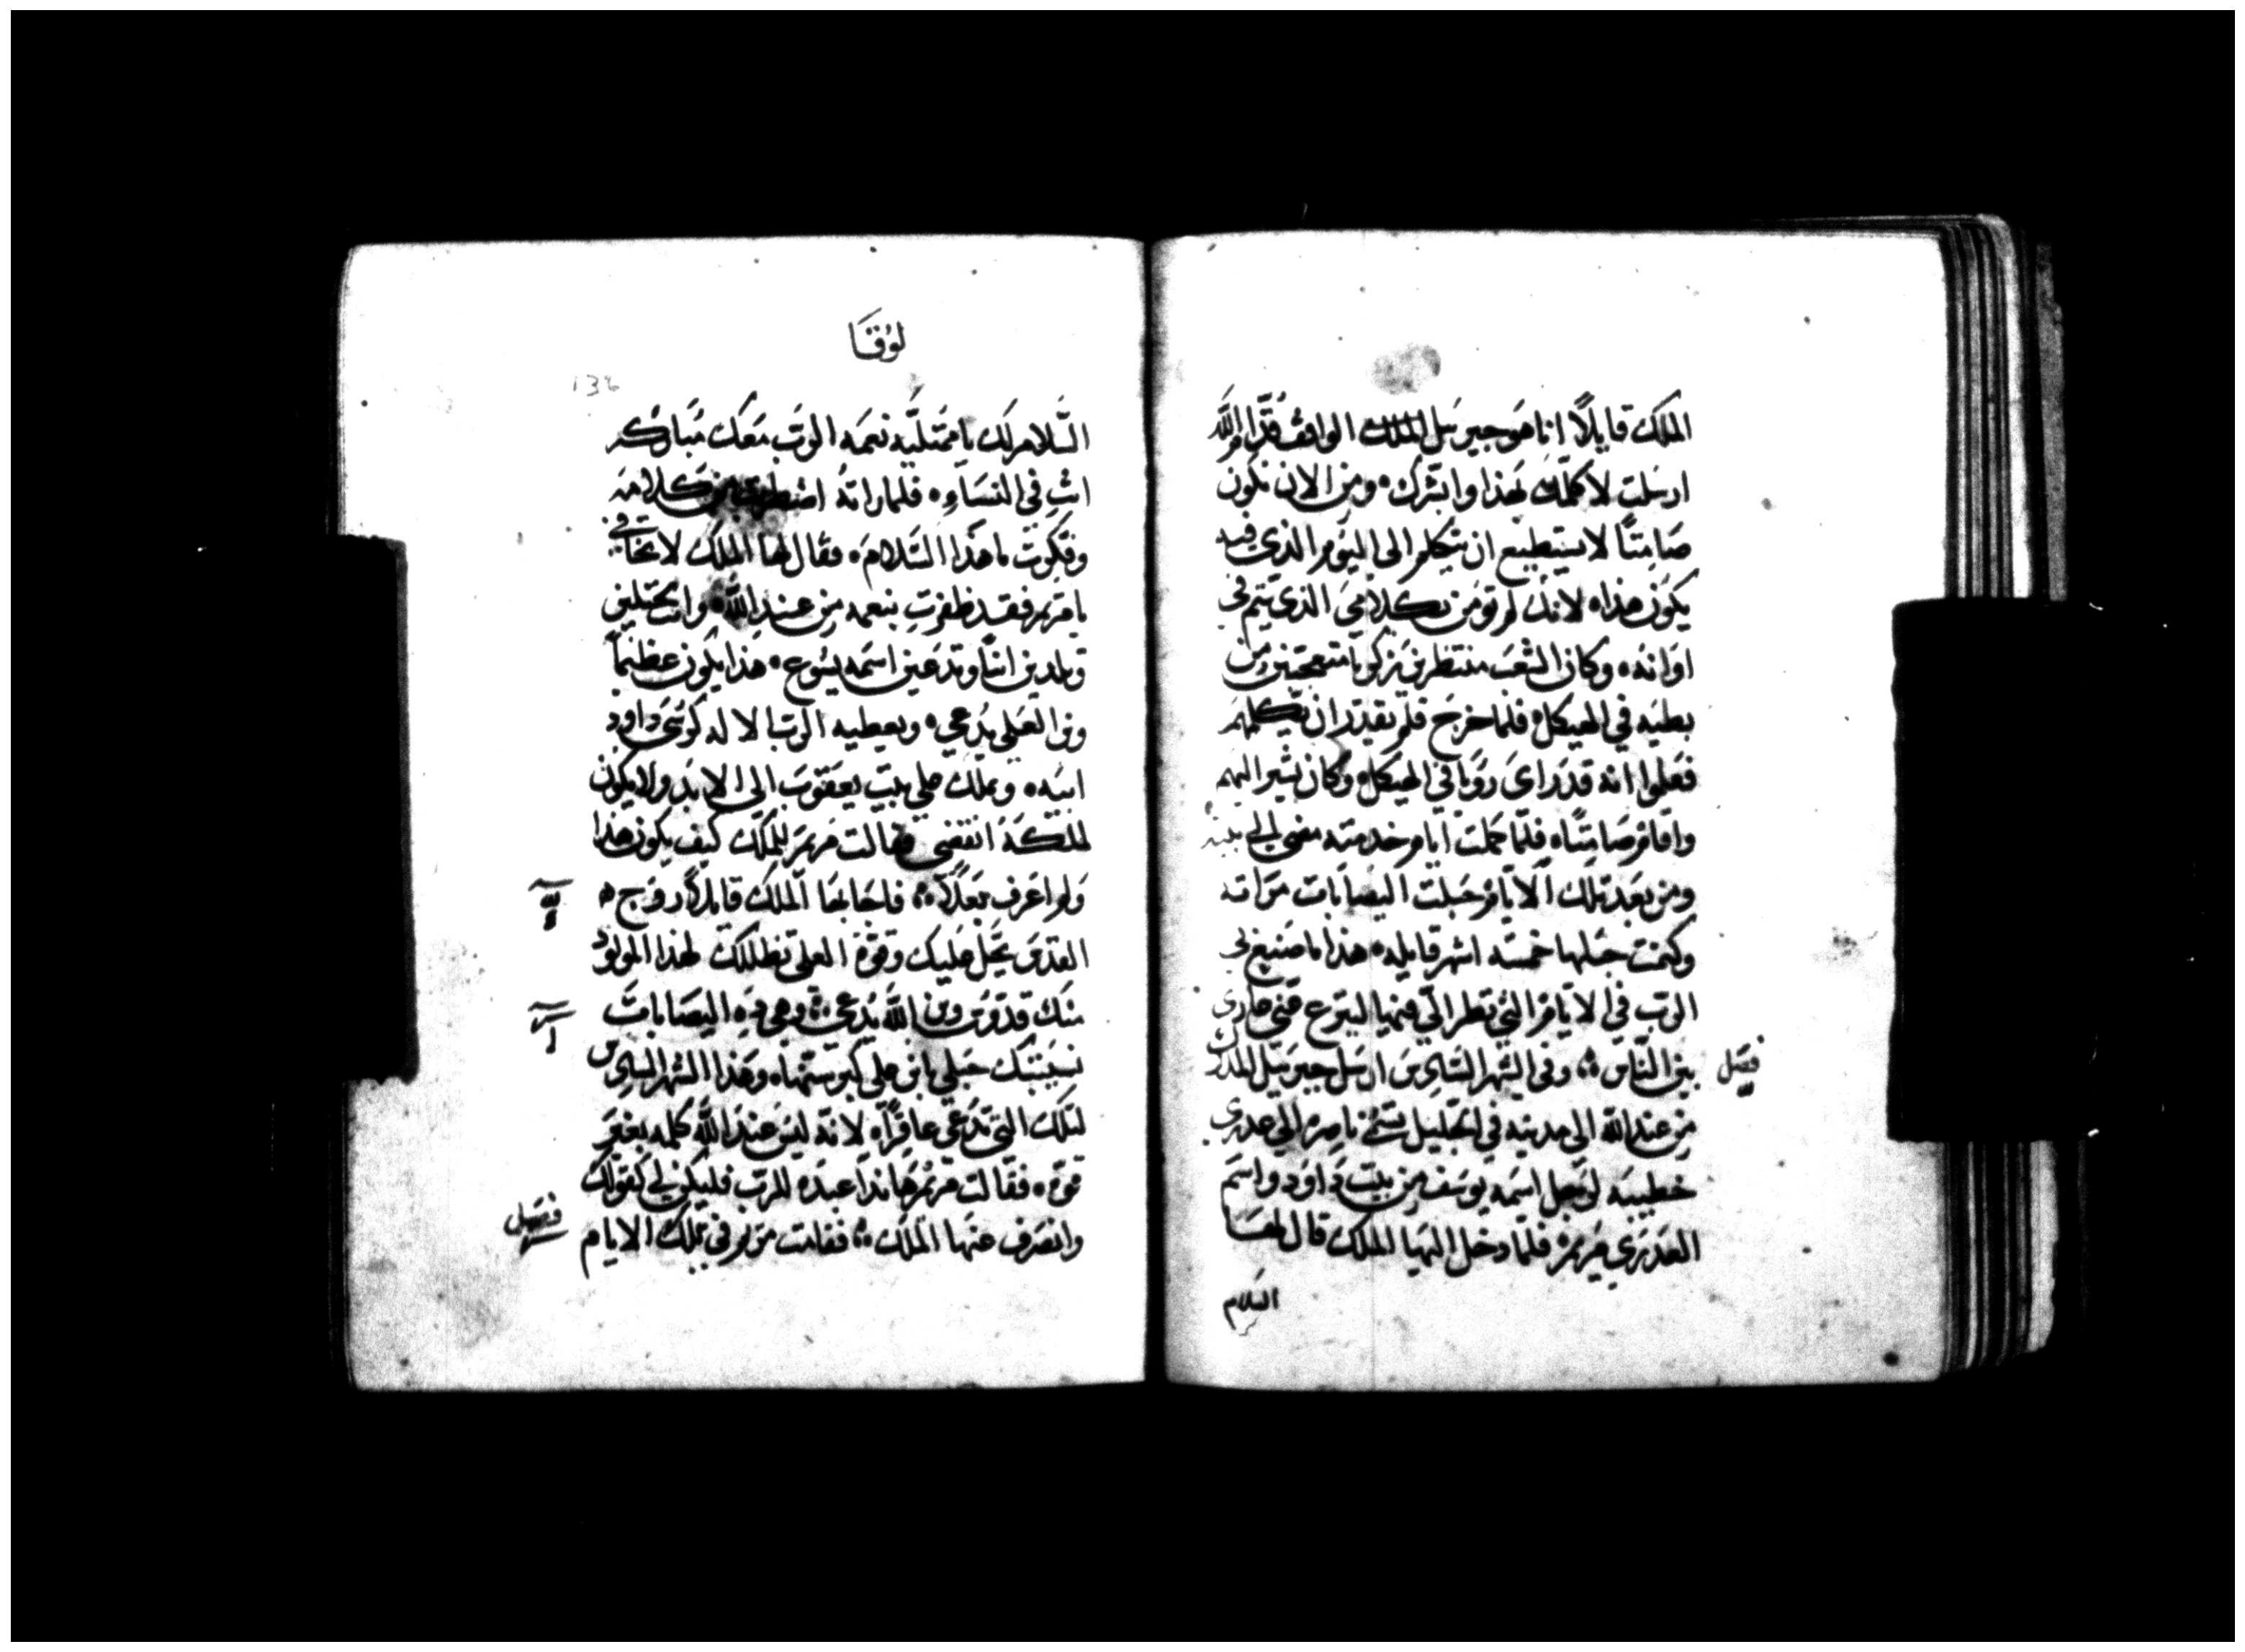 الملَك قايلاً انا هو جبرييل الملك الواقف قدَّام اللَّه
ارسَلت لاكلّمك بهذا وابشّرك ٥ ومن الان تكون
صَامتًا لا يستطيع ان يتكلم الى اليَوم الذي فيه
يكوَن هذا ٥ لانك لم تومَن بكلامي الذي يتم في
اوَانه ٥ وكان الشعَب منتظرين زكريا متعجبين من
بطيه في الهيكل ٥ فلما خرجَ فلم يقدر ان يكلمهم
فعَلموا انه قد رَاىَ روَيا في الهيكل ٥ وكان يشير اليهم
واقام صَامتًا ٥ فلمّا كملت ايام خدمته مضى الى بيته
ومن بعَد تلك الايام حَبلت اليصَابات مرَاته
وكتمت حبلها خمسَه اشهر قايله ٥ هذا ما صَنع لي
الربّ في الايام التي نظر اليّ فيها لينزع عني عاري
بين النَّاس ٥ وفي الشهر السَادس ارسَل جبرييل الملاك
فصَل
من عند اللَّه الى مدينه في الجليل تسمّى ناصره الى عدري
خطيبه لرجل اسمَه يوسَف من بيت داوَد واسم
العَدري مَريم ٥ فلمّا دخل اليها الملك قال لها
السَلام
لوُقَا
136
السَّلام لك يا ممتليَه نعمَه الربّ معَك مُباركه
انتِ في النسَاءِ ٥ فلما راتهُ اضطربت من كلامه
وفكرت ما هذا السَلام ٥ فقال لها الملَك لا تخافي
يا مريم فقد ظفرتِ بنعمه من عند اللَّه ٥ وانت تحبَلين
وتلدين ابنًا وتدعَين اسمَه يسُوع ٥ هذا يكون عظيمًا
وبن العَلي يُدعي ٥ ويعطيه الربّ الاله كرسي داود
ابيَه ٥ ويملك على بيت يعَقوبَ الي الابَد ولا يكون
لملكه انقضى فقالت مريَم للملَك كيف يكون هذا
وَلم اعَرف بَعلاً ٥ فاجَابها الملَك قايلاً روَح
القدسَ يحَل عَليك وقوّة العلي تظللك لهذا المولود
منك قدّوس وبن اللَّه يُدعي ٥ وهي ذه اليصَابات
نسَيبتك حَبلي بابن على كبر سَنّها ٥ وهَذا الشهر السَادس
لتلك التي تدَعَي عاقرًا ٥ لانه ليسَ عندَ اللَّه كلمه بغير
قوه ٥ فقالت مريم هَانذا عَبده للربّ فليكن لي كقولَك
فصَل
وانصَرف عَنها الملَك ٥ فقامت مريم في تلك الايام